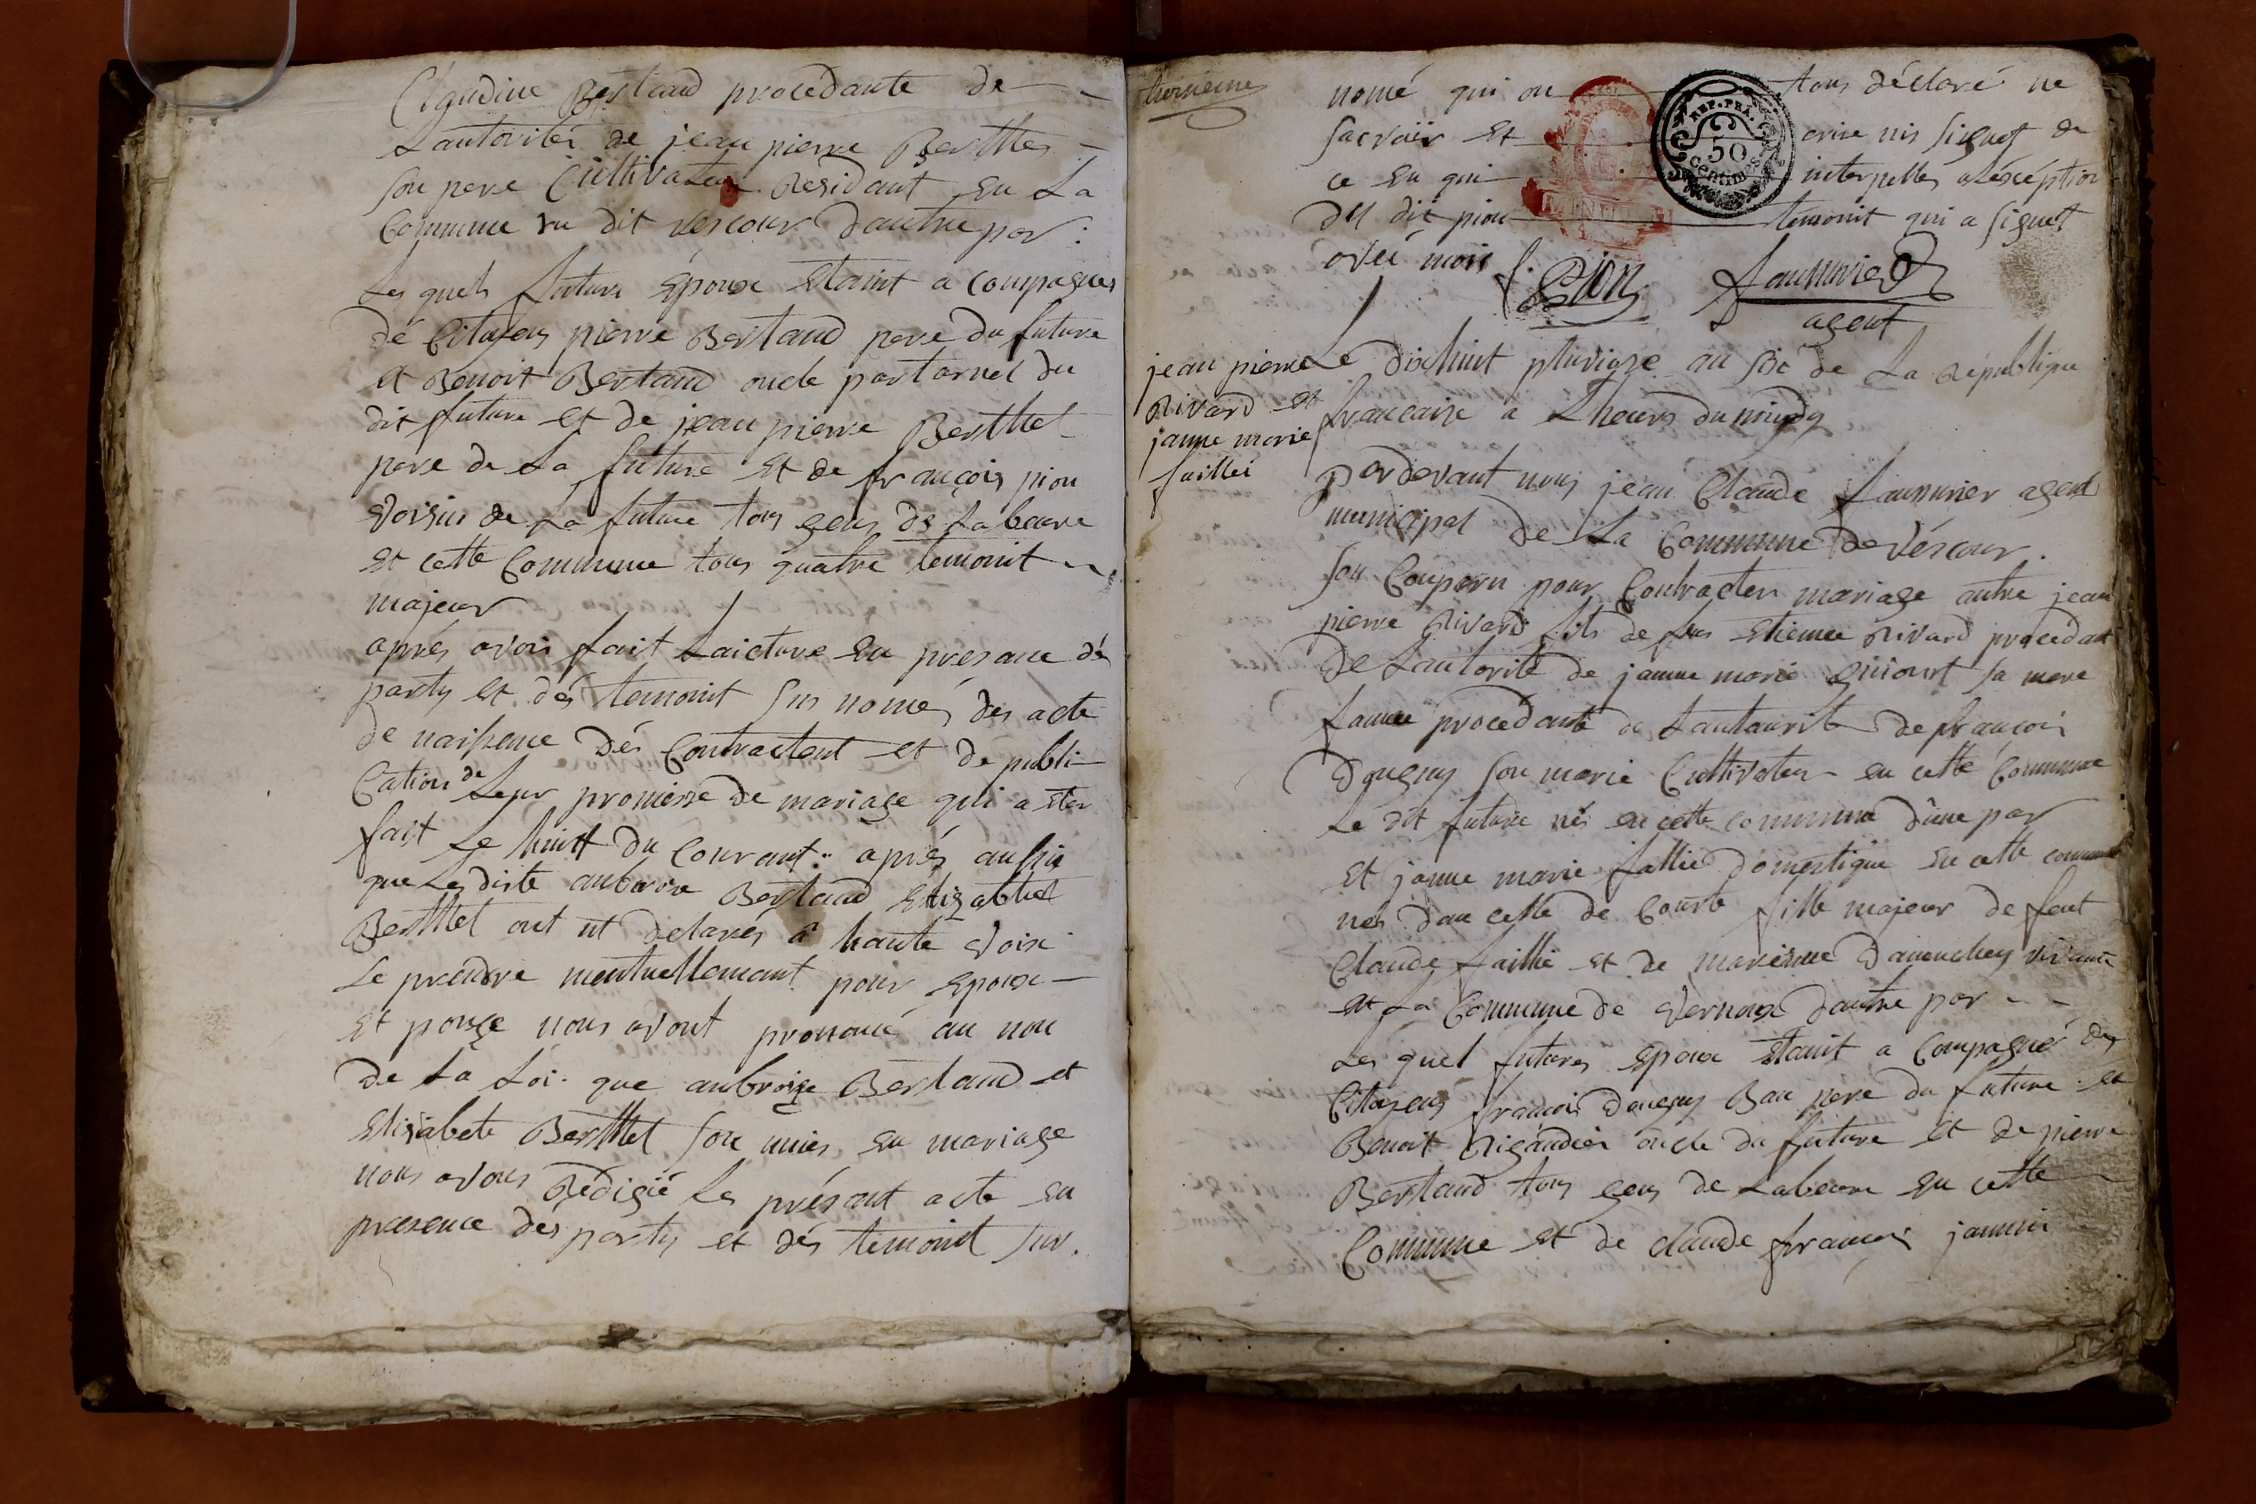 Claudine Bertaud procedante de
Lautorités de jean pierre Berthet
son pere Cultivateur Residant en La
Commune du dit vescour dautre par :
Les quels futurs Epoux Etaint a compagnes
dé Citoyens pierre Bertaud pere du future
et Benoit Bertaud oncle partarnel du
dit future et de jean pierre Berthet
pere de La future et de françois pion
voisin de La future tous gens de Labeure
et cette Commune tous quatre temoint
majeur
aprés avoir fait Laicture en presance dés
partys et dés temoint sus només des acte
de naissence dés Contractant et de publi
cation de Leur promesse de mariage qui a Eter
fait Le huitt du Courant : aprés aussia
que Le dite anbroise Bertaud Elizabthet
Berthet ont ut delarés a haute voix
Le prendre meutuellemant pour Epoux
et pouze nous avont prononcé au non
de La Loi que anbroise Bertaud et
Elizabete Berthet son unies en mariage
nous avons Rédigié Le présant acte en
praesence des partys et dés temoint sur.
troisieme
nomé qui on tous déclaré ne
sacvoir Et crire nis signet de
ce en qui interpelles aléxcéption
du dit pion temoint qui a signet
avec moi f. Pion Faunnier
agent
jean pierre
Rivard et
janne marie
faillié
Le dixhuit pluviose an six de La Republique
francaise a Lheure du midy
pardevant nous jean Claude faunnier agent
municipal de La Commune de véscour.
son Conparu pour Contracter mariage antre jean
pierre Rivard fils de feu Etienne Rivard procedant
de Lautorité de janne marie sa mere
procedante de Lantaurité de françoi
Dougny son marie Cultivateur en cette Commune
Le dit future nés en cette commune d'une par
Et janne marie fallié domestique en cette commune
nés dan celle de Courte fille majeur de feut
Claude faillié et de marieanne vivante
en La Commune de vernoux dautre par
Les quel futures Epoux Etaint a compagné des
Citoyens francois dougny Bau pere du future et
Benoit Rigaudier oncle du future et de pierre
Bertaud tous gens de Labeure en cette
Commune et de claude francois jannin
REP. FRA.
50
Centimes